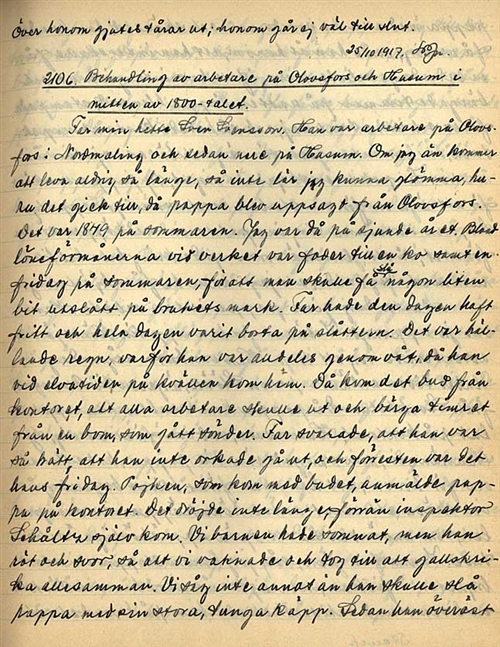 Över honom gjutes tårar ut; honom går ej väl till slut.
25/10 1917.
2106. Behandling av arbetare på Olovsfors och Hasum i
mitten av 1800-talet.
Far min hette Sven Svensson. Han var arbetare på Olovs-
fors i Nordmaling och sedan nere på Hasum. Om jag än kommer
att leva aldrig så länge, så inte lär jag kunna glömma, hu-
ru det gick till, då pappa blev uppsagt från Olovsfors.
Det var 1849 på sommaren. Jag var då på sjunde året. Bland
löneförmånerna vid verket var foder till en ko samt en
friday på sommaren, för att man skulle få slå någon liten
bit utslått på brukets mark. Far hade den dagen haft
fritt och hela dagen varit borta på slåttern. Det var hål-
lande regn, varför han var alldeles genomvåt, då han
vid elvatiden på kvällen kom hem. Då kom det bud från
kontoret, att alla arbetare skulle ut och bärga timret
från en bom, som gått sönder. Far svarade, att han var
så trött att han inte orkade gå ut, och förresten var det
hans friday. Pojken, som kom med budet, anmälde pap-
pa på kontoret. Det dröjde inte länge, förrän inspektor
Schültz själv kom. Vi barnen hade somnat, men han
röt och svor, så att vi vaknade och tog till att gallskri-
ka allesamman. Vi såg inte annat än han skulle slå
pappa med sin stora, tunga käpp. Sedan han överöst